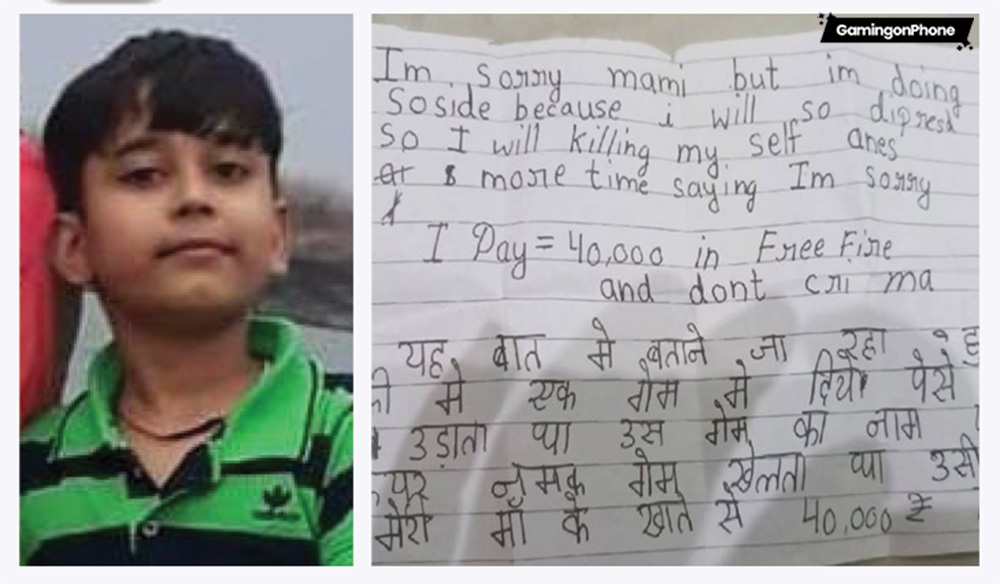 GamingonPhone
Im sorry mami but im doing
Soside because i will so dipresd
So I will killing my self anes
more time saying Im sorry
I Pay = 40,000 in Free Fire
and dont cri ma
यह बात मे बताने जा रहा हु
की मे एक गेम मे दिये पैसे
उड़ाता था उस गेम का नाम
नमक गेम खेलता था उसी
मेरी माँ के खाते से 40,000 ₹